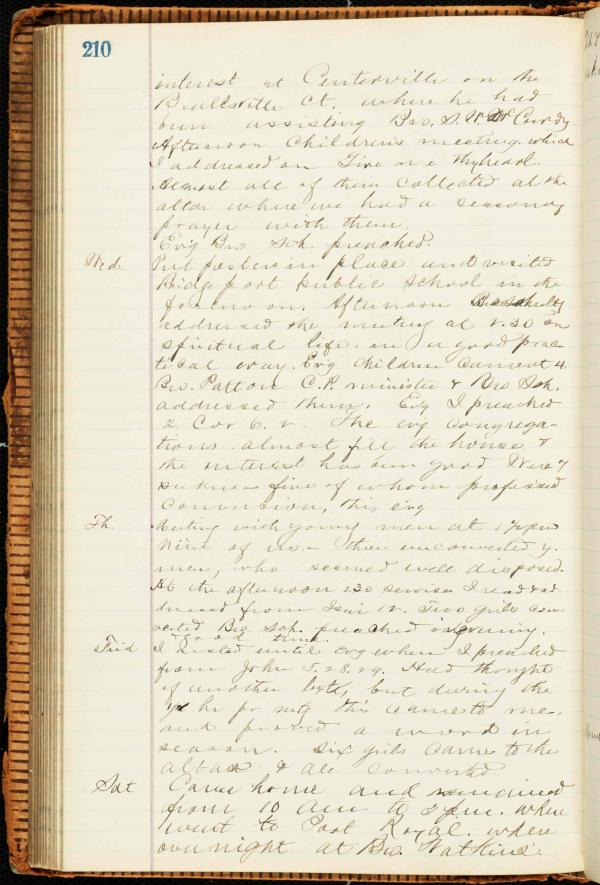 210
interest at Centerville on the
Beallsville Ct. where he had
been assisting Bro. S. W. McCurdy
Afternoon Children's meeting which
I addressed on Give me thy heart.
Almost all of them collected at the
altar where we had a season of
prayer with them.
Ev'g Bro Sch. preached.
Wed. Put posters in place and visited
Bridgeport public school in the
forenoon. Afternoon Bro Schultz
addressed the meeting at 2.30 on
spiritual life in a good prac
tical way. Ev'g children came at 4.
Bro. Patton C.P. minister & Bro Sch.
addressed them. Ev'g I preached
2 Cor 6. 2. The ev'g congrega-
tions almost fill the house &
the interest has been good. Were 7
seekers - five of whom professed
conversion, this ev'g
Th. Meeting with young men at 1 pm
Nine of us - three unconverted y.
men, who seemed well disposed.
At the afternoon 2.30 service I read & ad
dressed from Two girls con-
verted Bro. Sch. preached in evening.
& good time.
Frid I rested until ev'g when I preached
from John 5. 28.29. Had thought
of another text, but during the
1/2 hr pr mtg this came to me,
and proved a word in
season. Six girls came to the
altar & all converted.
Sat Came home and remained
from 10 am to 5 pm. when
I went to Port Royal. where
over night at Bro. Watkins'.